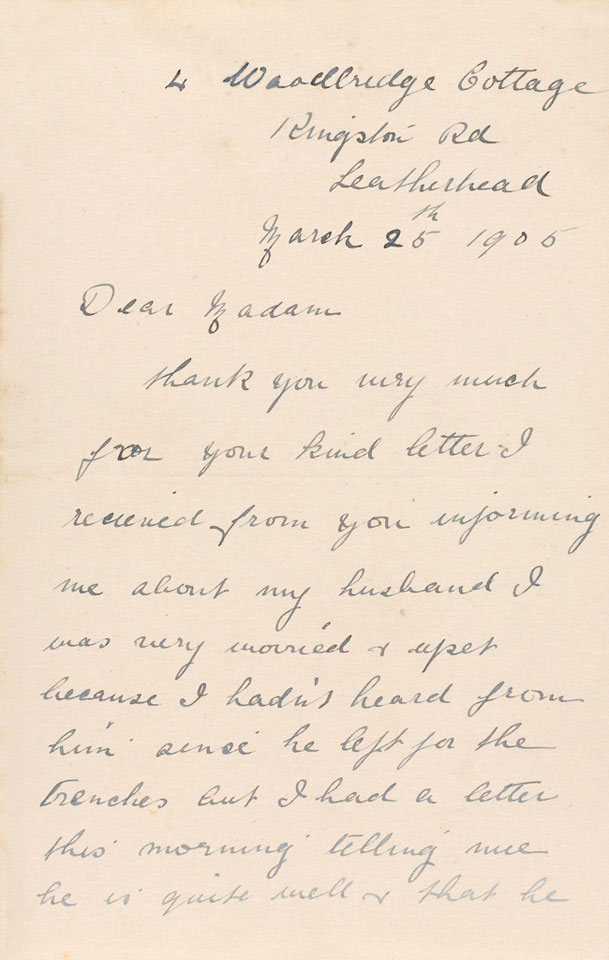 4 Woodbridge Cottage
Kingston Rd
Leatherhead
March 25th 1905
Dear Madam
thank you very much
for your kind letter I
recieved from you informing
me about my husband I
was very worried & upset
because I hadn't heard from
him since he left for the
trenches but I had a letter
this morning telling me
he is quite well & that he